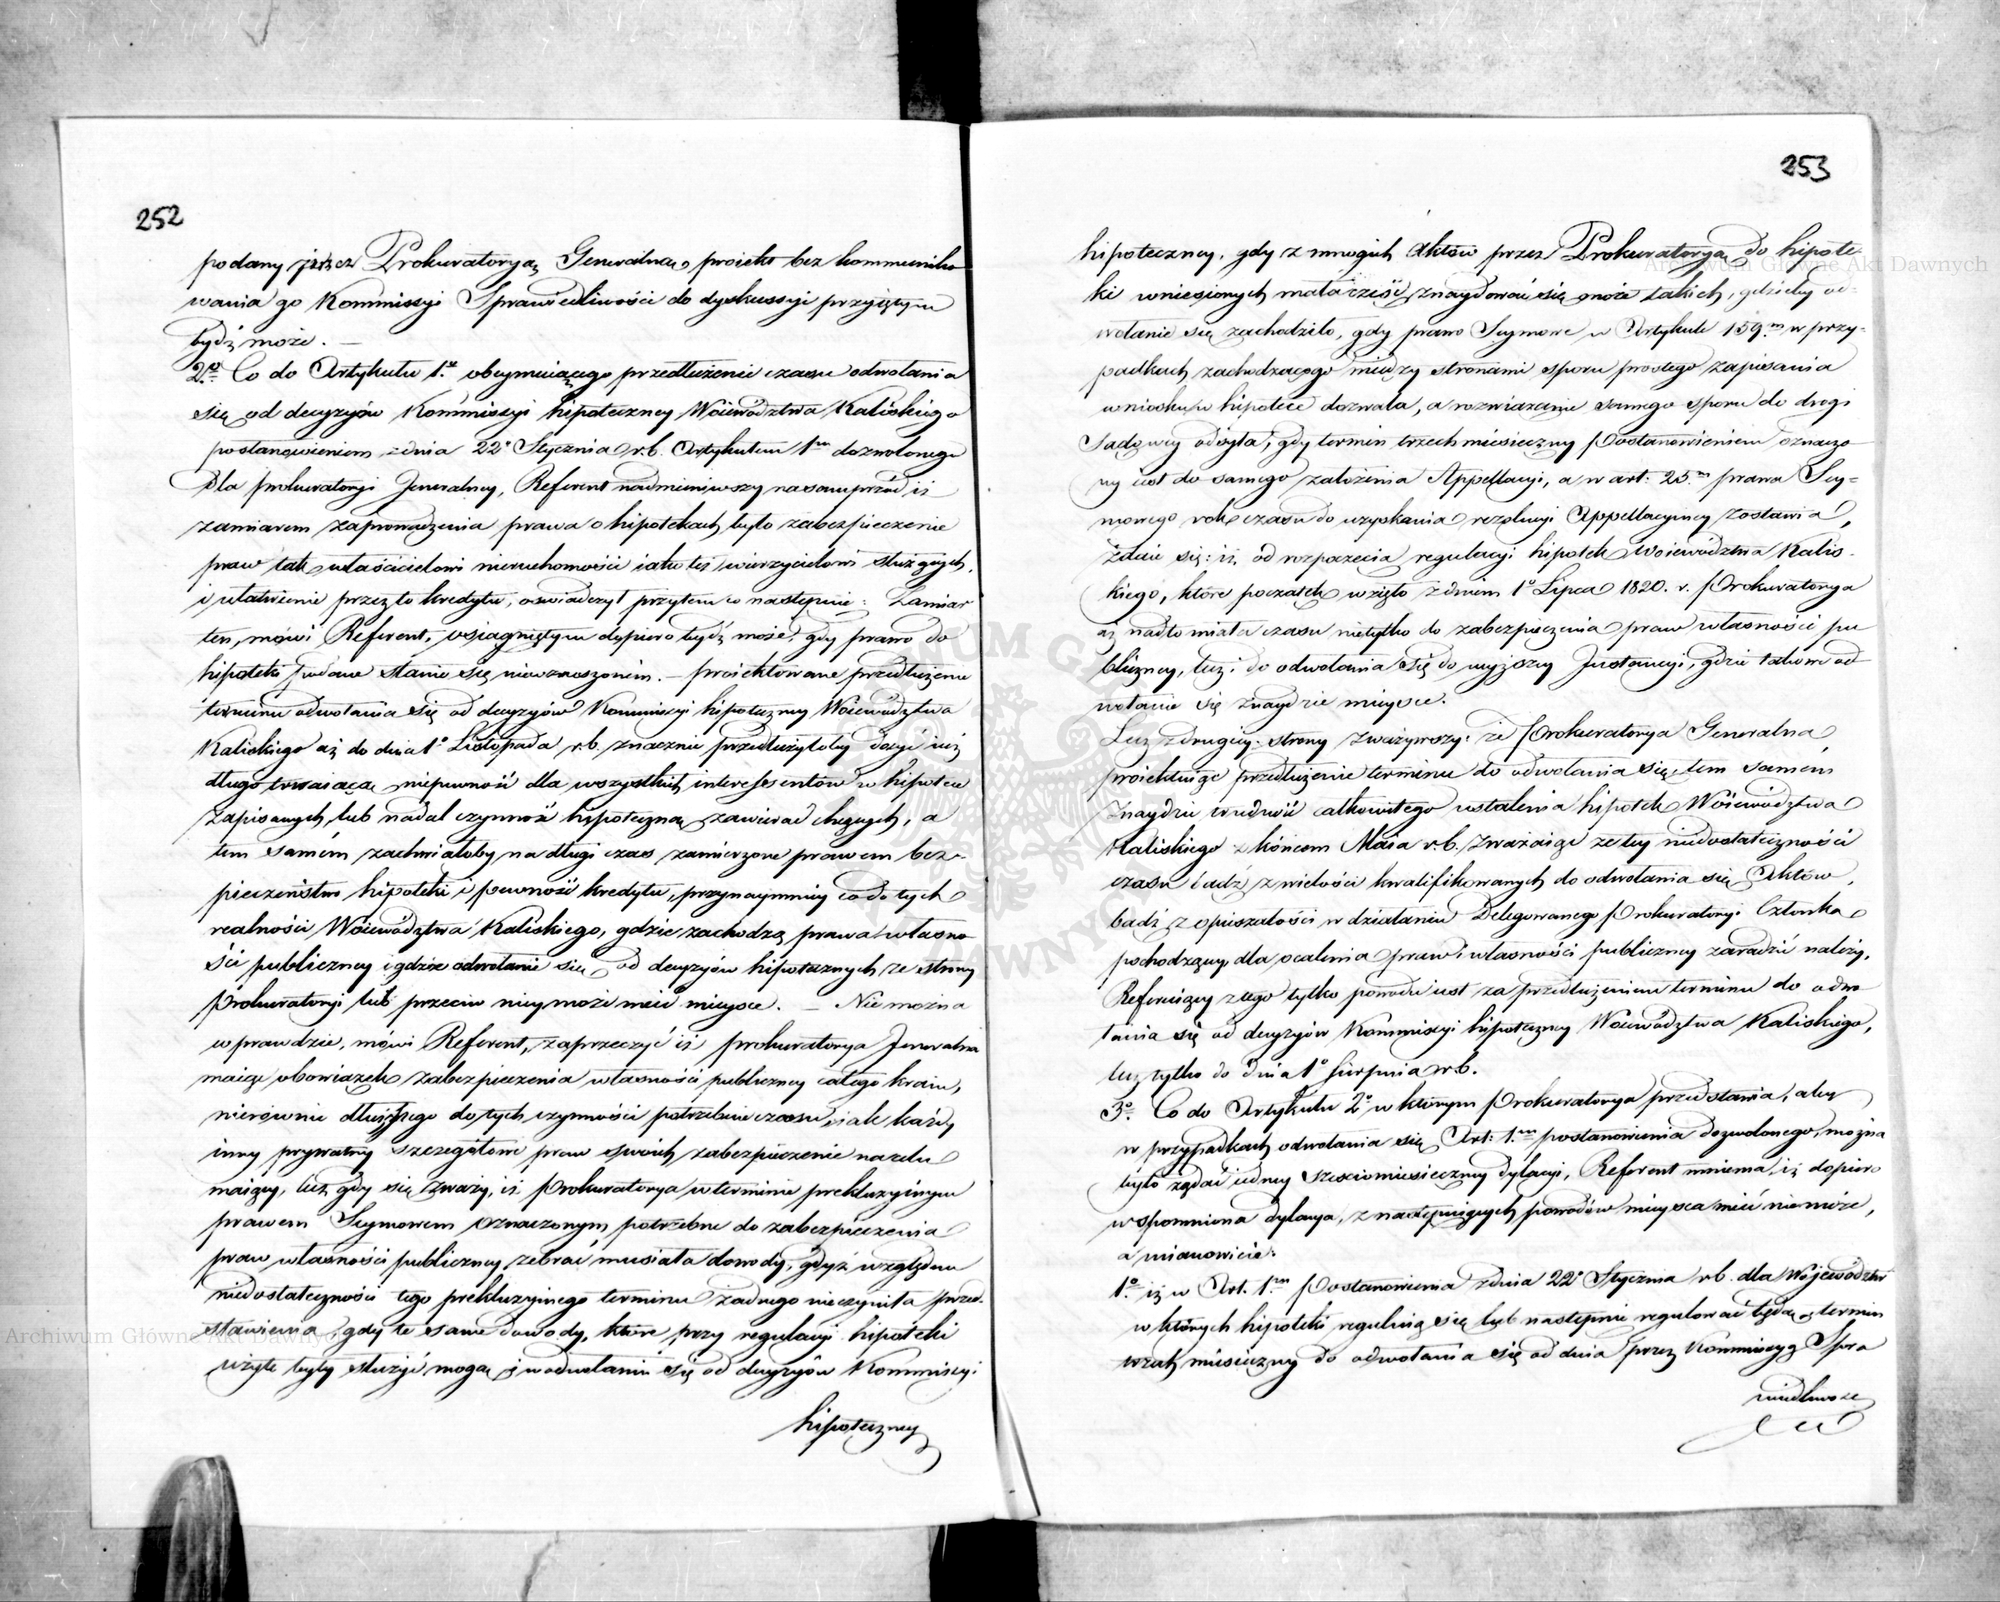 252
podany przez Prokuratoryą Generalną, proiekt bez kommuniko
wania go Kommissyi Sprawiedliwości do dyskussyi przyiętym
bydź może. —
2o Co do Artykułu 1o obeymuiącego przedłużenie czasu odwołania
się od decyzyów Kommissyi hipoteczney Woiewództwa Kaliskiego
postanowieniem z dnia 22o Stycznia r.b. Artykułem 1m dozwolonego
dla prokuratoryi Jeneralney, Referent nadmieniwszy nasamprzód iż
zamiarem zaprowadzenia prawa o hipotekach było zabezpieczenie
praw tak właścicielowi nieruchomości iako też wierzycielowi służących,
i ułatwienie przez to kredytu, oświadczył przytem co następuie: Zamiar
ten, mówi Referent, osiągniętym dopiero bydź może, gdy prawo do
hipoteki podane stanie się niewzruszonem. — proiektowane przedłużenie
terminu odwołania się od decyzyów Kommissyi hipoteczney Woiewództwa
Kaliskiego aż do dnia 1o Listopada r.b. znacznie przedłużyłoby dosyć iuż
długo trwaiącą niepewność dla wszystkich interessentów w hipotece
zapisanych, lub nadal czynność hipoteczną zawierać chcących, a
tem samém zachwiałoby na długi czas zamierzone prawem bez-
pieczeństwo hipoteki i pewność kredytu, przynaymniey co do tych
realności Woiewództwa Kaliskiego, gdzie zachodzą prawa własno
ści publiczney i gdzie odwołanie się od decyzyów hipotecznych ze strony
Prokuratoryi lub przeciw niey może mieć mieysce. — Nie można
wprawdzie, mówi Referent, zaprzeczyć iż prokuratorya Jeneralna
maiąc obowiązek zabezpieczenia własności publiczney całego kraiu,
nierównie dłuższego do tych czynności potrzebuie czasu, iak każdy
inny prywatny szczegółowe praw swoich zabezpieczenie na celu
maiący, lecz gdy się zważy, iż Prokuratorya w terminie prekluzyinym
prawem Seymowem oznaczonym potrzebne do zabezpieczenia
praw własności publiczney zebrać musiała dowody, gdyż względem
niedostateczności tego prekluzyinego terminu żadnego nie czyniła przed-
stawienia, gdy te same dowody, które przy regulacyi hipoteki
użyte były służyć mogą i w odwołaniu się od decyzyów Kommissyi
hipoteczney
253
hipoteczney, gdy z mnogich Aktów przez Prokuratoryą do hipote-
ki wniesionych mała część znaydować się może takich, gdzieby od-
wołanie się zachodziło, gdy prawo Seymowe w Artykule 159m w przy-
padkach zachodzącego między stronami sporu prostego zapisania
wniosku w hipotece dozwala, a rozwiązanie samego sporu do drogi
Sądowey odsyła, gdy termin trzech miesięczny Postanowieniem oznaczo
ny iest do samego założenia Appellacyi, a w art: 25m prawa Sey-
mowego rok czasu do uzyskania rezolucyi Appellacyiney zostawia,
zdaie się: iż od rozpoczęcia regulacyi hipotek Woiewództwa Kalis-
kiego, które początek wzięło z dniem 1o Lipca 1820. r. Prokuratorya
aż nadto miała czasu nietylko do zabezpieczenia praw własności pu
bliczney, lecz i do odwołania się do wyższey Instancyi, gdzie takowe od
wołanie się znaydzie mieysce.
Lecz z drugiey strony zważywszy: że Prokuratorya Generalna,
proiektuiąc przedłużenie terminu do odwołania się, tem samem
znaydzie trudność całkowitego ustalenia hipotek Woiewództwa
Kaliskiego z końcem Maia r.b. zważaiąc że tey niedostateczności
czasu bądź z wielości kwalifikowanych do odwołania się Aktów,
bądź z opieszałości w działaniu Delegowanego Prokuratoryi Członka
pochodzącey, dla ocalenia praw i własności publiczney zaradzić należy,
Referuiący z tego tylko powodu iest za przedłużeniem terminu do odwo
łania się od decyzyów Kommissyi hipoteczney Woiewództwa Kaliskiego,
lecz tylko do dnia 1o Sierpnia r.b.
3o Co do Artykułu 2o w którym Prokuratorya przedstawia, aby
w przypadkach odwołania się Art: 1m postanowienia dozwolonego, można
było żądać iedney sześciomiesięczney dylacyi, Referent mniema, iż dopiero
wspomniona dylacya, z następuiących powodów mieysca mieć nie może,
a mianowicie:
1o iż w Art. 1m Postanowienia z dnia 22o Stycznia r.b. dla Wojewódzw
w których hipoteki reguluią się lub następnie regulować będą, termin
trzech miesięczny do odwołania się od dnia przez Kommissyą Spra
wiedliwości